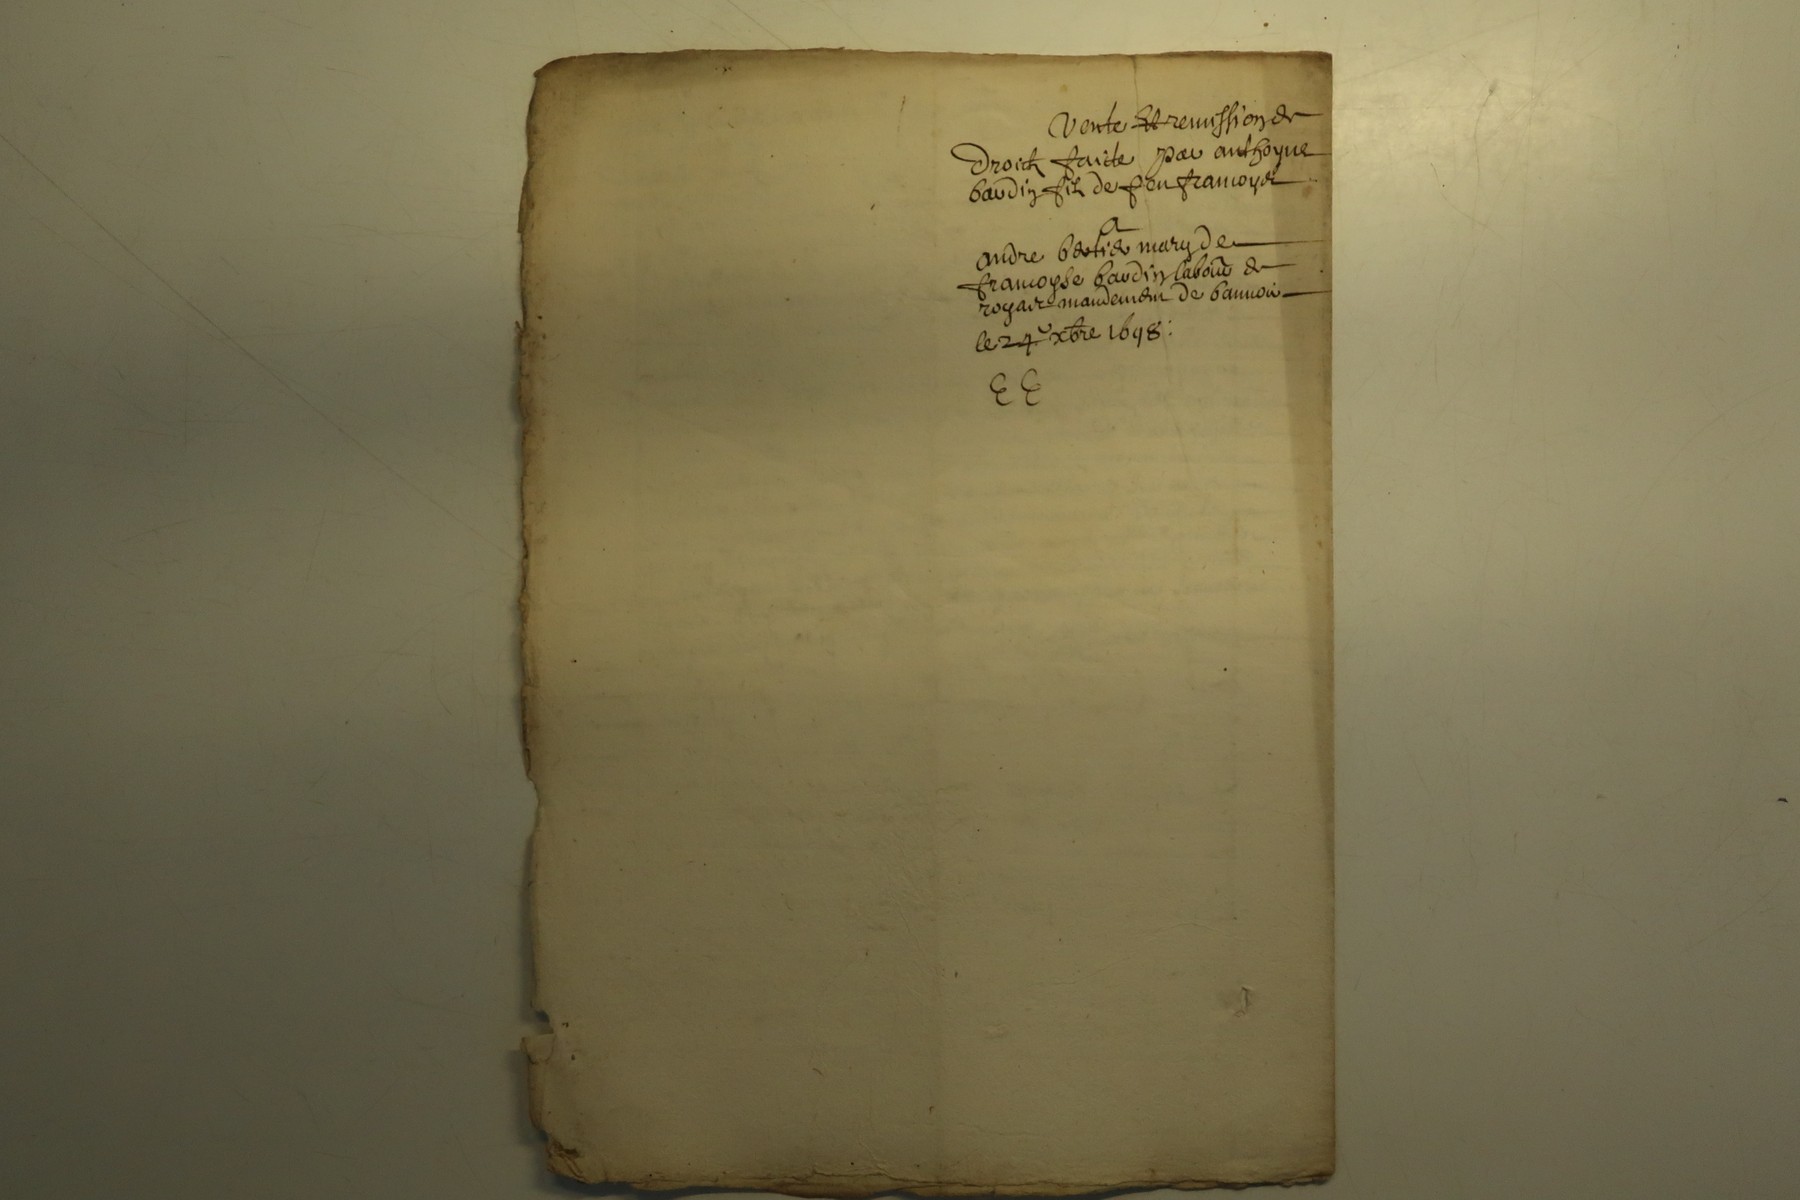 Vente Et remission de
Droictz faicte par anthoyne
bardin filz de feu francoys
A
andre bertier mary de
francoyse bardin labour de
royas mandement de bannoir
le 24e xbre 1698:
EE